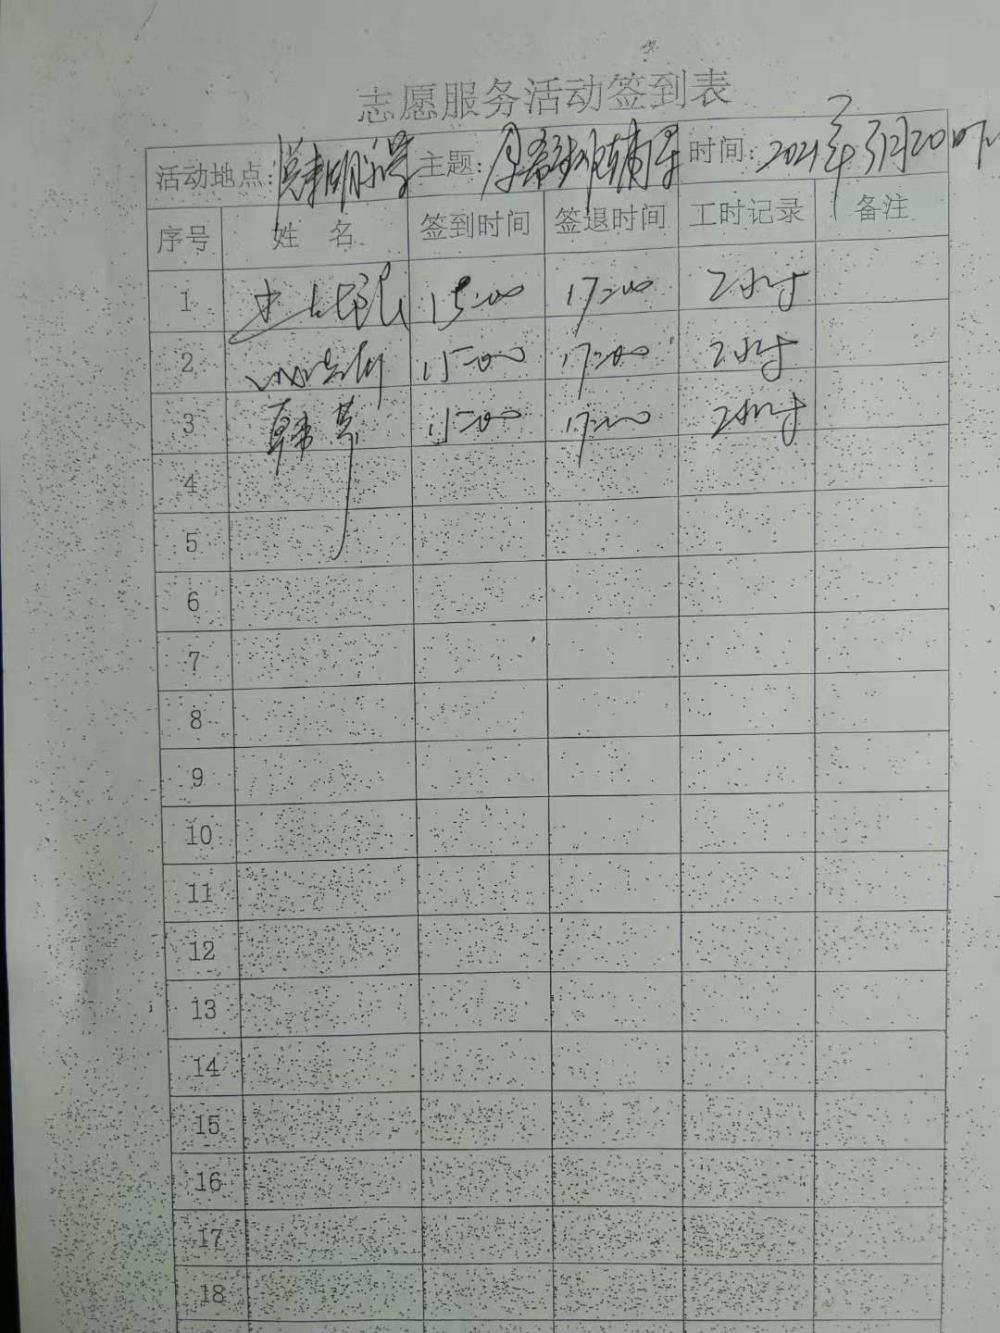 志愿服务活动签到表
活动地点: 主题: 时间: 2021年3月20日
序号 姓 名 签到时间 签退时间 工时记录 备注
1 15:00 17:00 2小时
2 15:00 17:00 2小时
3 韩 15:00 17:00 2小时
4
5
6
7
8
9
10
11
12
13
14
15
16
17
18